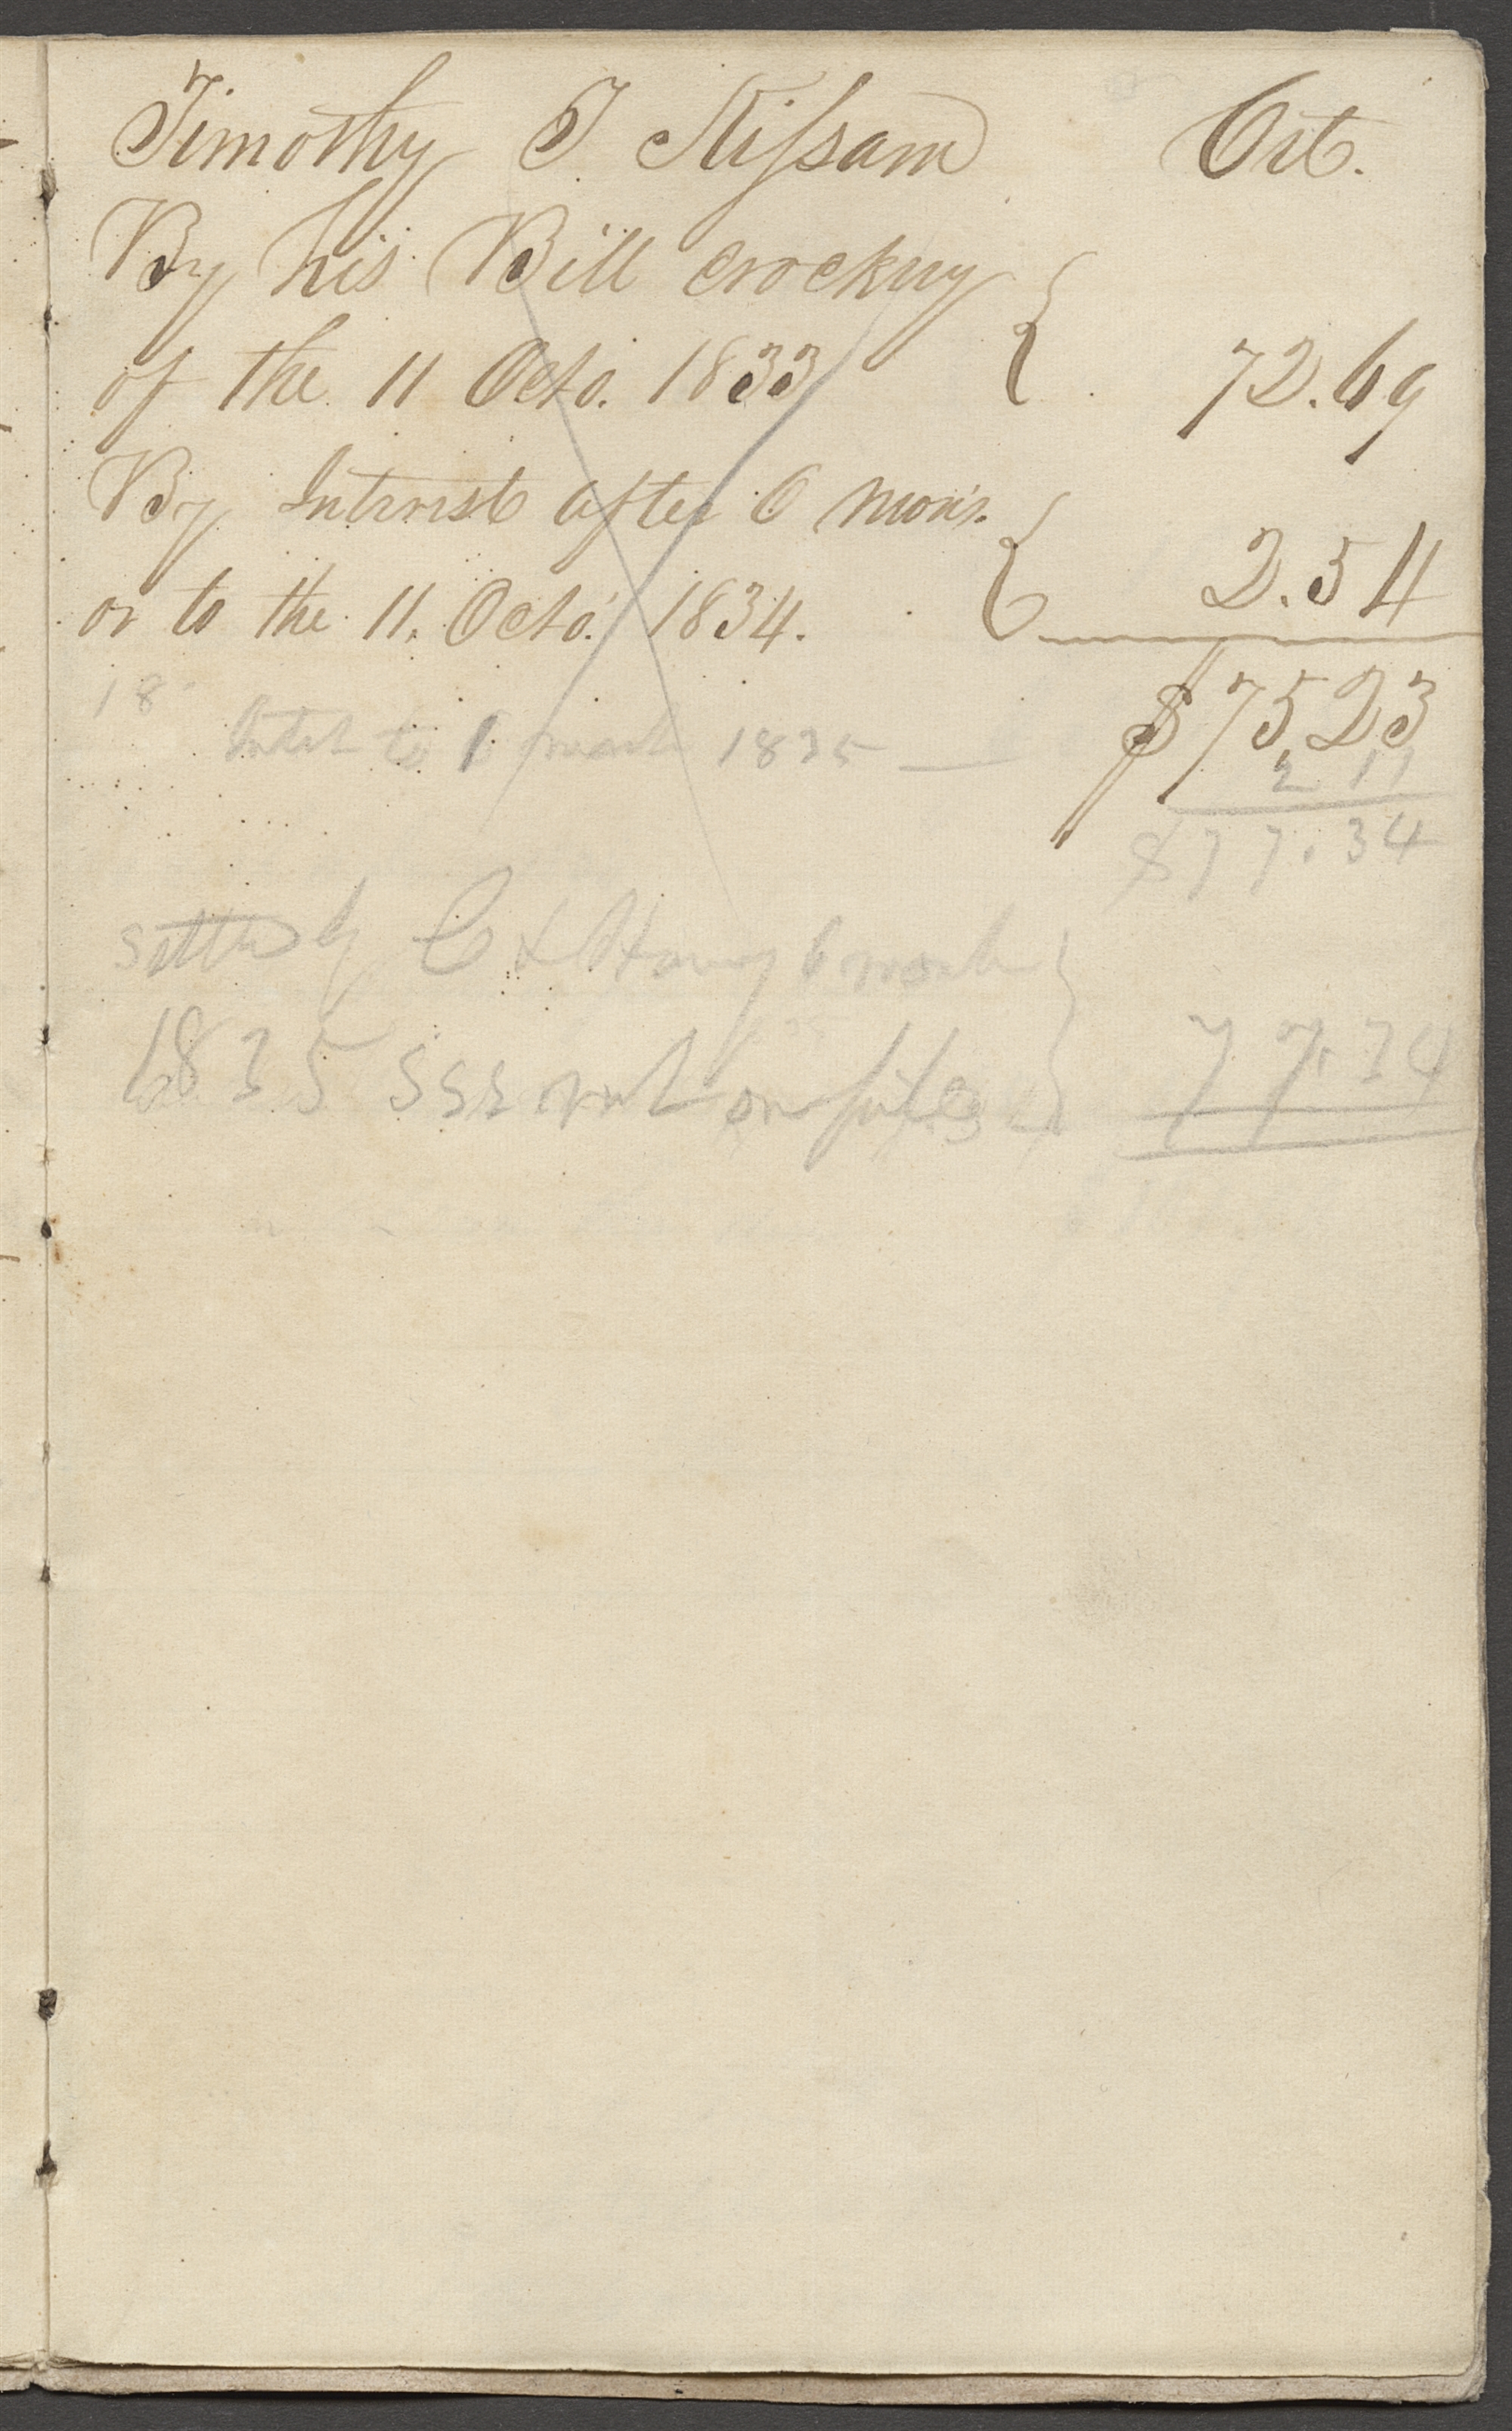 Timothy T Kissam Crt.
By his Bill crockery
of the 11 Octo. 1833 72.69
By Interest after 6 Mon's.
or to the 11. Octo. 1834. 2.54
18 $75,23
Intst to 6 march 1835 — 2 11
$77.34
settled by C & Henry 6 march
1835 see rect on file 77.34